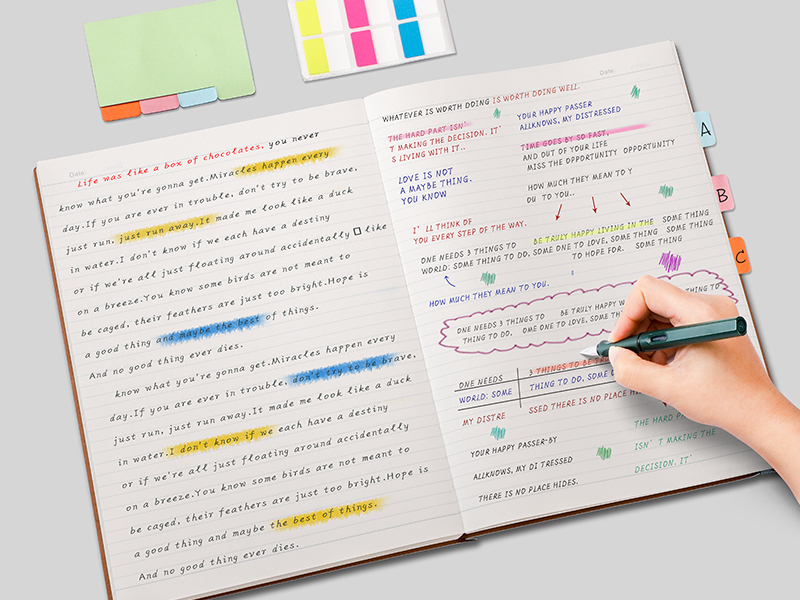 Date:
Life was like a box of chocolates, you never
know what you're gonna get.Miracles happen every
day.If you are ever in trouble, don't try to be brave,
just run, just run away.It made me look like a duck
in water.I don't know if we each have a destiny
or if we're all just floating around accidentally like
on a breeze.You know some birds are not meant to
be caged, their feathers are just too bright.Hope is
a good thing and maybe the best of things.
And no good thing ever dies.
know what you're gonna get.Miracles happen every
day.If you are ever in trouble, don't try to be brave,
just run, just run away.It made me look like a duck
in water.I don't know if we each have a destiny
or if we're all just floating around accidentally
on a breeze.You know some birds are not meant to
be caged, their feathers are just too bright.Hope is
a good thing and maybe the best of things.
And no good thing ever dies.
Date:
WHATEVER IS WORTH DOING IS WORTH DOING WELL.
THE HARD PART ISN'
T MAKING THE DECISION. IT'
S LIVING WITH IT..
YOUR HAPPY PASSER
ALLKNOWS, MY DISTRESSED
TIME GOES BY SO FAST,
AND OUT OF YOUR LIFE
MISS THE OPPORTUNITY OPPORTUNITY
LOVE IS NOT
A MAYBE THING.
YOU KNOW
HOW MUCH THEY MEAN TO Y
OU TO YOU..
I' LL THINK OF
YOU EVERY STEP OF THE WAY.
ONE NEEDS 3 THINGS TO BE TRULY HAPPY LIVING IN THE SOME THING
WORLD: SOME THING TO DO, SOME ONE TO LOVE, SOME THING SOME THING
TO HOPE FOR. SOME THING
HOW MUCH THEY MEAN TO YOU.
ONE NEEDS 3 THINGS TO BE TRULY HAPPY THING TO
THING TO DO, OME ONE TO LOVE, SOME
ONE NEEDS 3 THINGS TO BE
WORLD: SOME THING TO DO, SOME
MY DISTRE SSED THERE IS NO PLACE
YOUR HAPPY PASSER-BY
ALLKNOWS, MY DI TRESSED
THERE IS NO PLACE HIDES.
THE HARD
ISN' T MAKING THE
DECISION. IT'
A
B
C